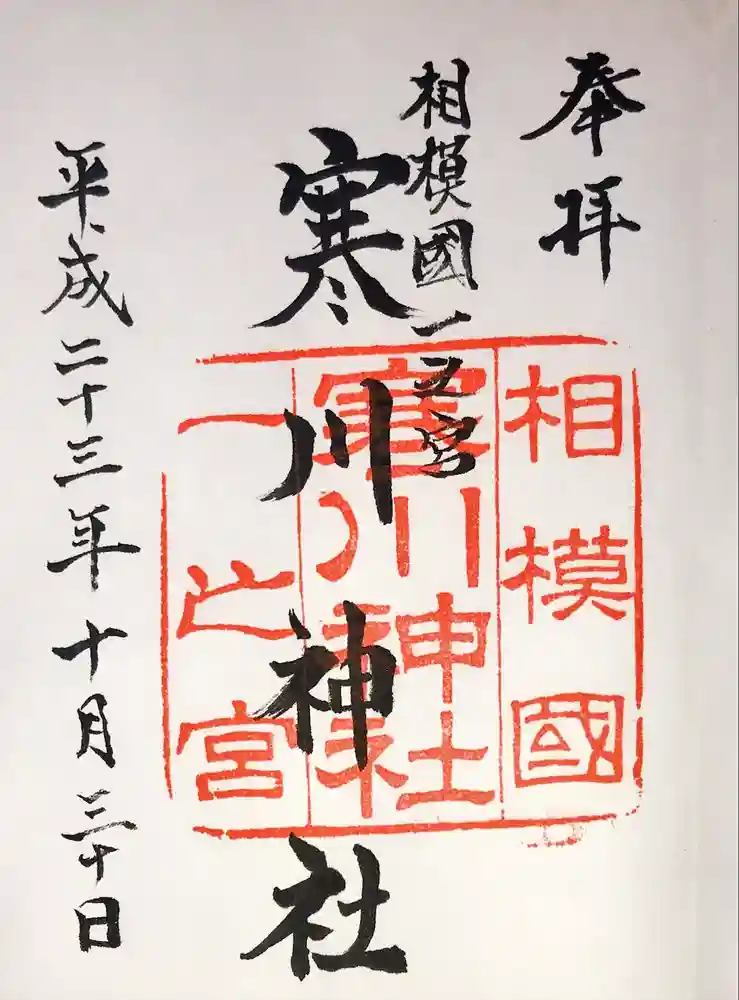 奉拝
相模國一之宮
寒川神社
平成二十三年十月三十日
相模國
寒川神社
一之宮